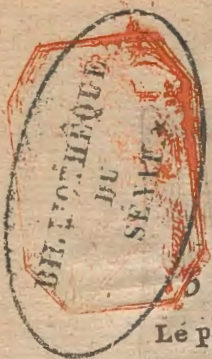 BIBLIOTHÈQUE
DU
SÉNAT
Le p